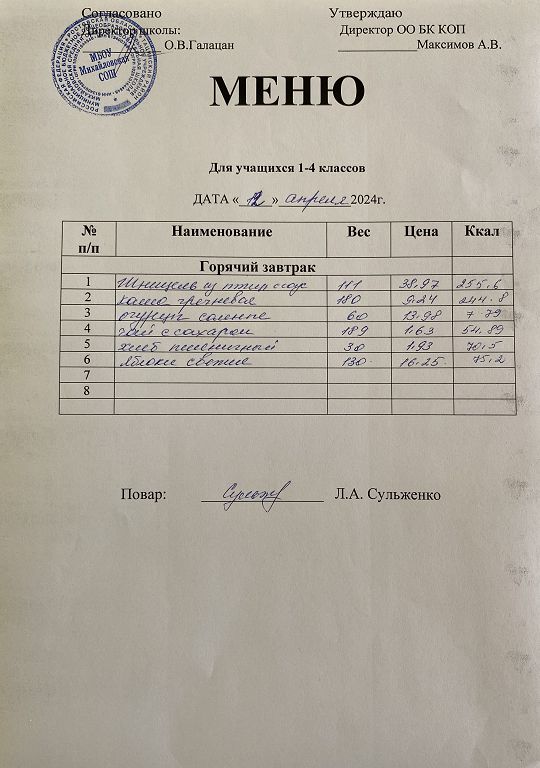 Согласовано Утверждаю
Директор школы: Директор ОО БК КОП
О.В.Галацан Максимов А.В.
МБОУ
Михайловская
СОШ
МЕНЮ
Для учащихся 1-4 классов
ДАТА «12» апреля 2024г.
№ п/п Наименование Вес Цена Ккал
Горячий завтрак
1 Шницель из птицы 111 38.97 255.6
2 каша гречневая 180 9.24 244.8
3 огурцы соленые 60 13.98 7.79
4 чай с сахаром 189 1.63 54.89
5 хлеб пшеничный 30 1.93 70.5
6 яблоки свежие 130 16.25 75.2
7
8
Повар: Л.А. Сульженко